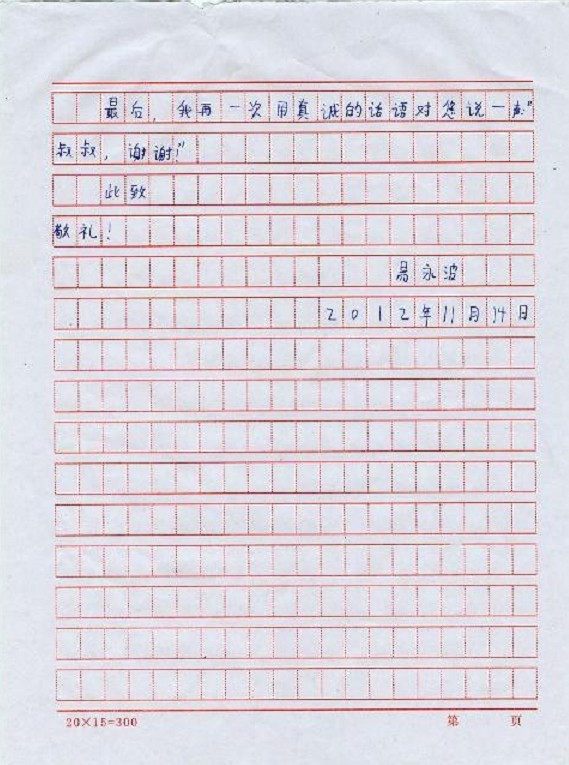 最后，我再一次用真诚的话语对您说一声"
叔叔，谢谢！"
此致
敬礼！
易永波
2012年11月14日
20×15=300 第 页